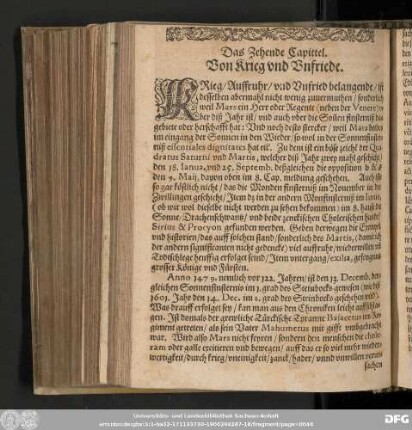 Das Zehende Capittel.
Von Krieg vnd Vnfriede.
KRieg/ Auffruhr/ vnd Vnfried belangende/ ist
desselben abermahl nicht wenig zuvermuthen/ sonderlich
weil Mars ein Herr oder Regente (neben der Venere) v-
ber diß Jahr ist/ vnd auch vber die Sollen finsterniß die
gebiete oder herschafft hat: Vnd noch desto stercker/ weil Mars beides
im eingang der Sonnen in den Wieder so wol in der Sommfinster
niß essentiales dignitates hat. Zu dem ist ein böse zeiche der Qua-
dratus Saturni vnd Martis, welcher diß Jahr zwey mahl geschicht/
den 18. Ianua, vnd 25. Septemb. deßgleichen die opposition
den 9. Maij, davon oben im 8. Cap. meldung geschehen. Auch ist
so gar köstlich nicht/ das die Monden finsterniß im November in die
Zwillingen geschicht/ Item das in der andern Monfinsterniß im Iunio
(ob wir wol dieselbe nicht werden zu sehen bekommen) im 8. hauß die
Sonne/ Drachenschwantz/ vnd beide Cholerischen Hunde
Sirius & Procyon gefunden werden. Geben derwegen die
vnd historien/ das auff solchen stand/ sonderlich des Martis, (damit ich
der andern significanten nicht gedencke) viel auffruhr/ wiederwillen vn
Todtschlege heuffig erfolget seind/ Item untergang/ exilia, gefengnis
grosser Könige vnd Fürsten.
Anno nemlich vor 122. Jahren/ ist den 13. Decemb. der-
gleichen Sonnenfinsternis im 3. grad des Steinbocks gewesen/ (wie
1601. Jahr den 14. Dec. im 2. grad des Steinbocks geschehen
Was drauff erfolget sey/ kan man aus den Chronicken leicht
gen. Ist domals der grewliche Türckische Tyranne Bajacet ins Re-
giment getreten/ als sein Vater Mahumetus mit gifft vmbgebracht
war. Wird also Mars nicht feyren/ sondern den menschen die chole-
ram oder galle erritieren vnd bewegen/ auff das er so viel mehr wieder-
wertigkeit/ durch krieg/ vneinigkeit/ zanck/ hader/ vnnd vnwillen
sachen
Universitäts- und Landesbibliothek Sachsen-Anhalt
DFG